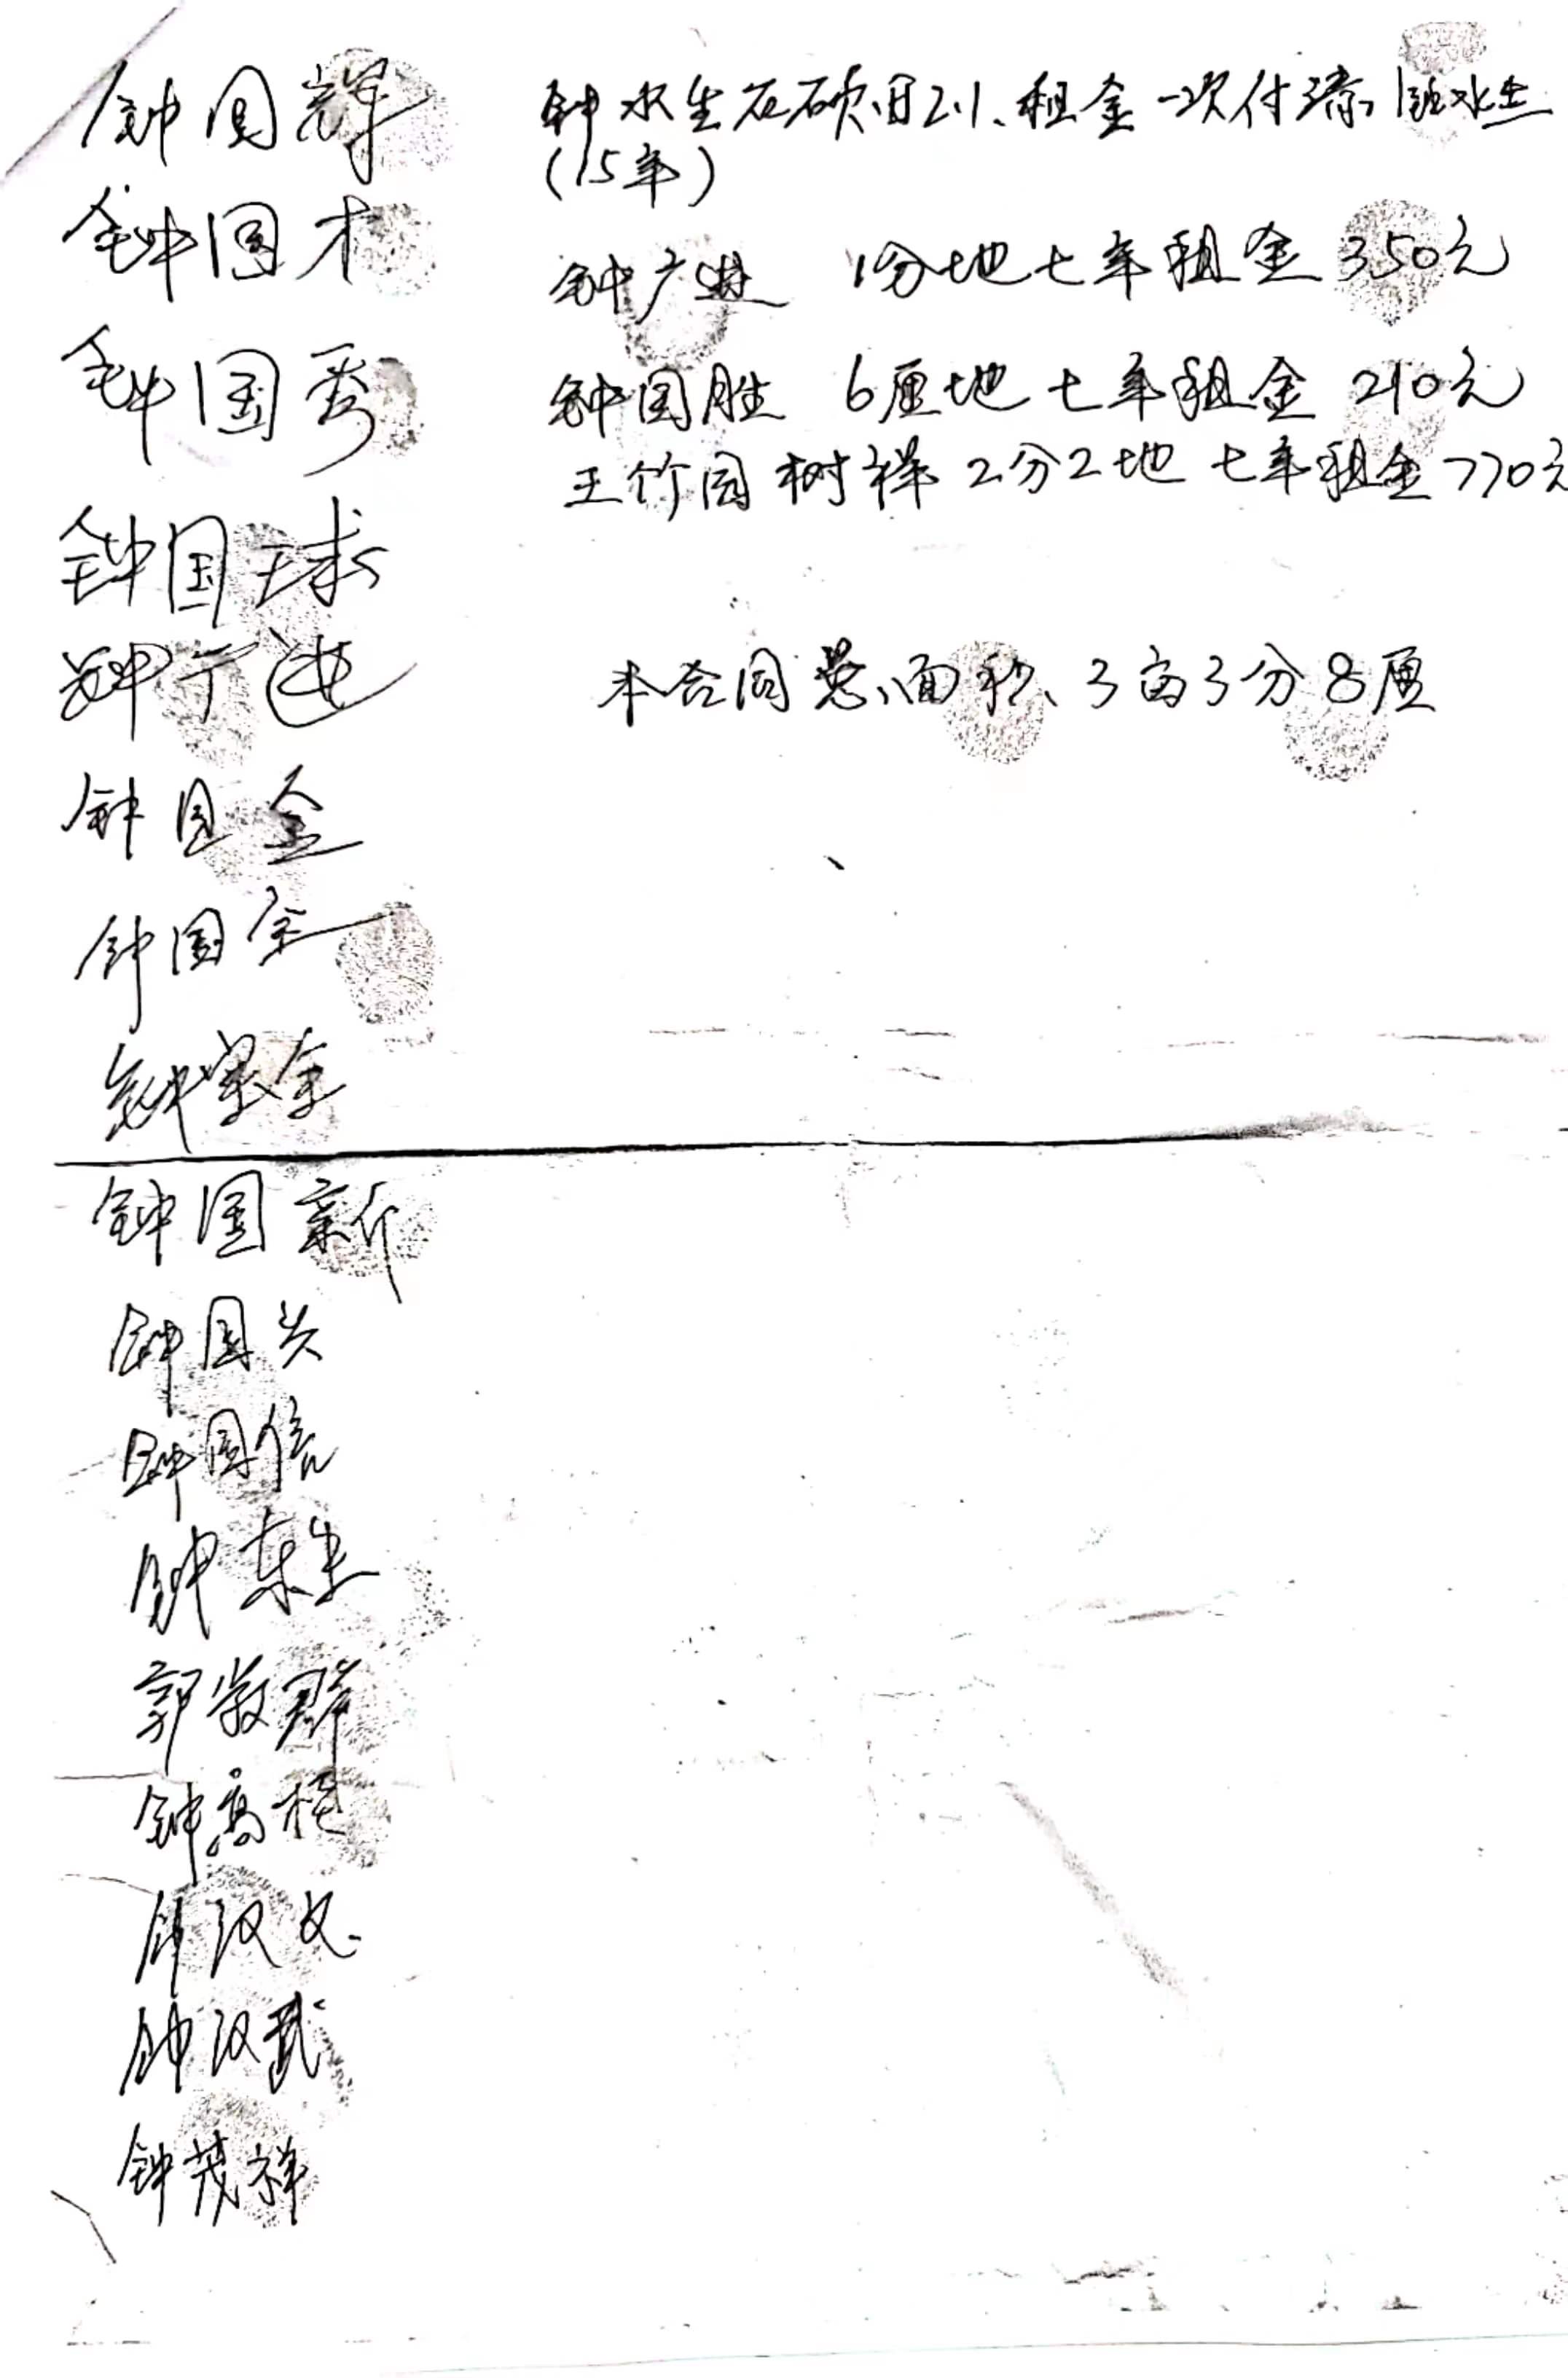 钟国辉
钟国才
钟国秀
钟国球
钟广进
钟国金
钟国全
钟
钟国新
钟国兴
钟国信
钟东生
郭 群
钟高
钟汉文
钟汉武
钟茂祥
钟水生在 租金一次付清 钟水生
(15年)
钟广进 1分地七年租金350元
钟国胜 6厘地七年租金210元
王竹园树祥2分2地七年租金770元
本合同总面积、3亩3分8厘